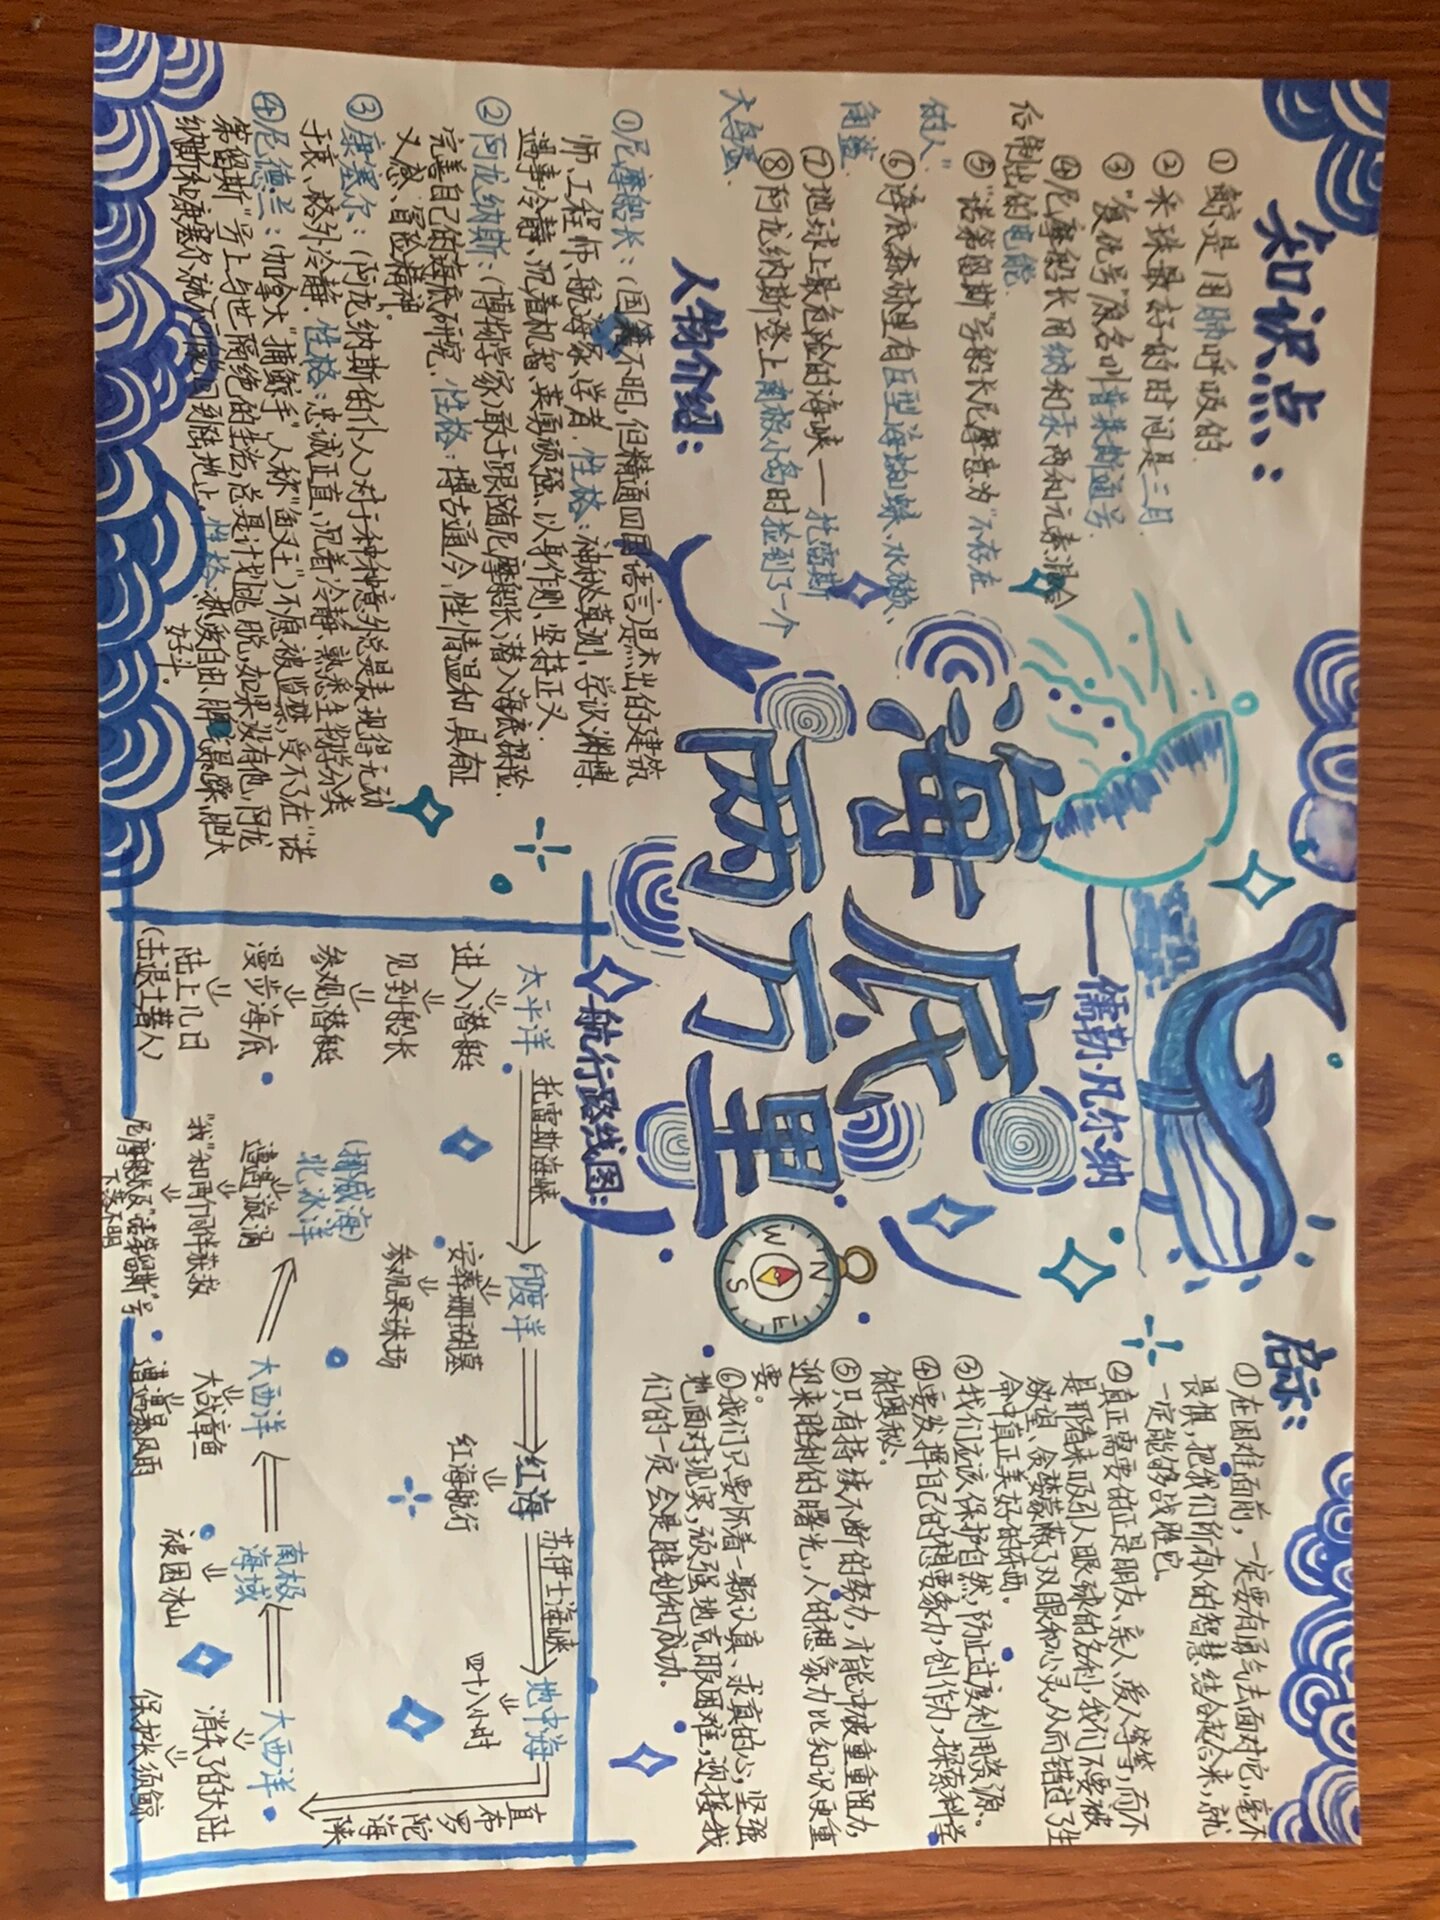 海底
两万里
——儒勒·凡尔纳
知识点：
① 鲸是用肺呼吸的.
② 采珠最好的时间是三月
③ "复仇号"原名叫"普莱斯通号
④ 尼摩船长用纳和汞两种元素混合
后制出的电能.
⑤ "诺第留斯"号船长尼摩意为"不存在
的人"
⑥ 海底森林里有巨型海蜘蛛、水獭、
角鲨.
⑦ 地球上最危险的海峡——托雷斯
⑧ 阿龙纳斯登上南极小岛时捡到了一个
大鸟蛋.
人物介绍：
① 尼摩船长：(国籍不明，但精通四国语言)是杰出的建筑
师、工程师、航海家、学者. 性格：神秘莫测、学识渊博.
遇事冷静、沉着机智、英勇顽强、以身作则、坚持正义.
② 阿龙纳斯：(博物学家)敢于跟随尼摩船长潜入海底探险.
完善自己的海底研究. 性格：博古通今，性情温和，具有正
义感、冒险精神.
③ 康塞尔：(阿龙纳斯的仆人)对于种种意外总是表现得无动
于衷、格外冷静. 性格：忠诚正直、沉着冷静、熟悉生物学分类
④ 尼德·兰：(加拿大"捕鲸手"人称"鱼叉王")不愿被监禁，受不了在"诺
第留斯"号上与世隔绝的生活，总是计划逃脱，如果没有他，阿龙
纳斯和康塞尔就不可能回到陆地上. 性格：热爱自由、脾气暴躁、胆大
好斗.
启示：
① 在困难面前，一定要有勇气去面对它，毫不
畏惧，把我们所有人的智慧结合起来，就
一定能够战胜它.
② 真正需要的正是朋友、亲人、爱人等等，而不
是那看来吸引人眼球的名利，我们不要被
欲望、贪婪蒙蔽了双眼和心灵，从而错过了生
命中真正美好的东西。
③ 我们应该保护自然，防止过度利用资源。
④ 要发挥自己的想象力，创作力，探索科学
的奥秘。
⑤ 只有持续不断的努力，才能冲破重重阻力，
迎来胜利的曙光，人的想象力比知识更重
要。
⑥ 我们只要怀着一颗认真、求真的心，坚强
地面对现实，顽强地克服困难，迎接我
们的一定会是胜利和成功.
航行路线图：
太平洋
托雷斯海峡
印度洋
红海
苏伊士海峡
地中海
进入潜艇
见到船长
参观潜艇
漫步海底
陆上几日
(击退土著人)
安葬珊瑚墓
参观采珠场
红海航行
四十八小时
直布罗陀海峡
大西洋
消失了的大陆
保护长须鲸
南极
海域
被困冰山
大西洋
大战章鱼
遭遇暴风雨
(挪威海)
北冰洋
遭遇漩涡
"我"和两个同伴获救
尼摩船长及"诺第留斯"号
下落不明
N
E
S
W